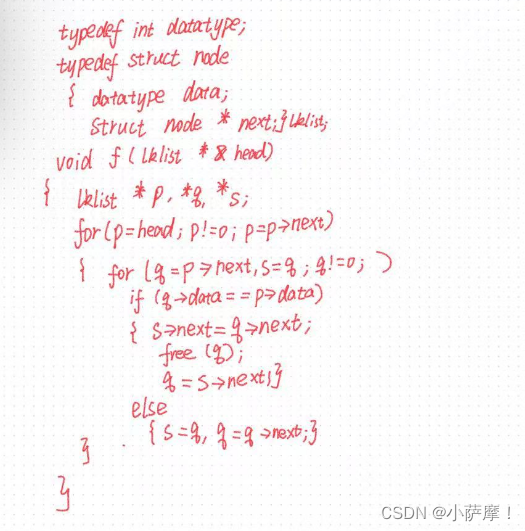 typedef int datatype;
typedef struct node
{ datatype data;
struct node * next;}lklist;
void f(lklist * & head)
{ lklist * p, *q, *s;
for(p=head; p!=0; p=p→next)
{ for (q=p→next,s=q; q!=0; )
if (q→data==p→data)
{ s→next=q→next;
free (q);
q=s→next;}
else
{ s=q, q=q→next;}
}
}
CSDN @小萨摩!